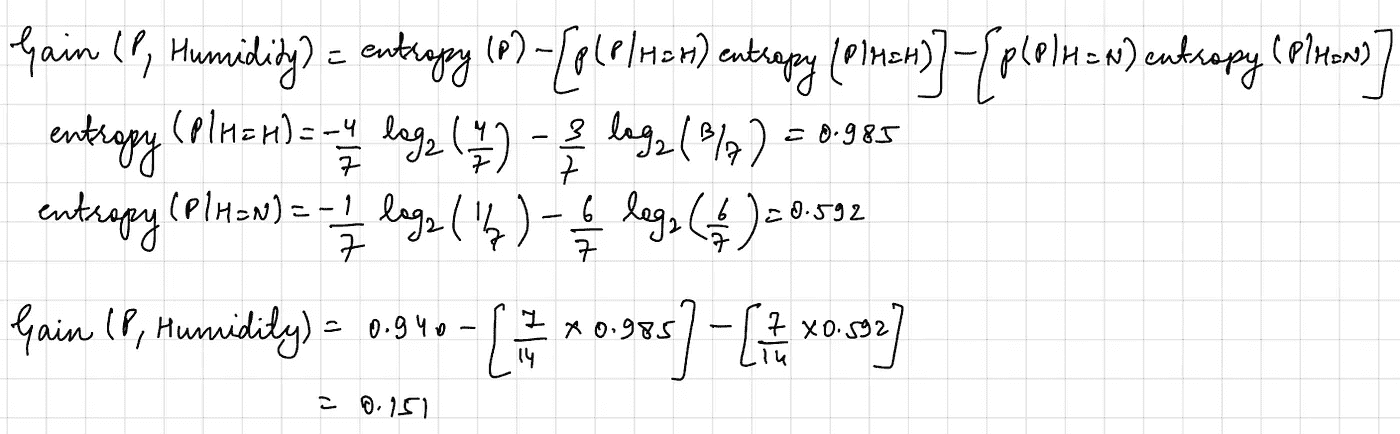 Gain (P, Humidity) = entropy (P) - [P(P|H=H) entropy (P|H=H)] - [P(P|H=N) entropy (P|H=N)]
entropy (P|H=H) = -4/7 log₂(4/7) - 3/7 log₂(3/7) = 0.985
entropy (P|H=N) = -1/7 log₂(1/7) - 6/7 log₂(6/7) = 0.592
Gain (P, Humidity) = 0.940 - [7/14 × 0.985] - [7/14 × 0.592]
= 0.151